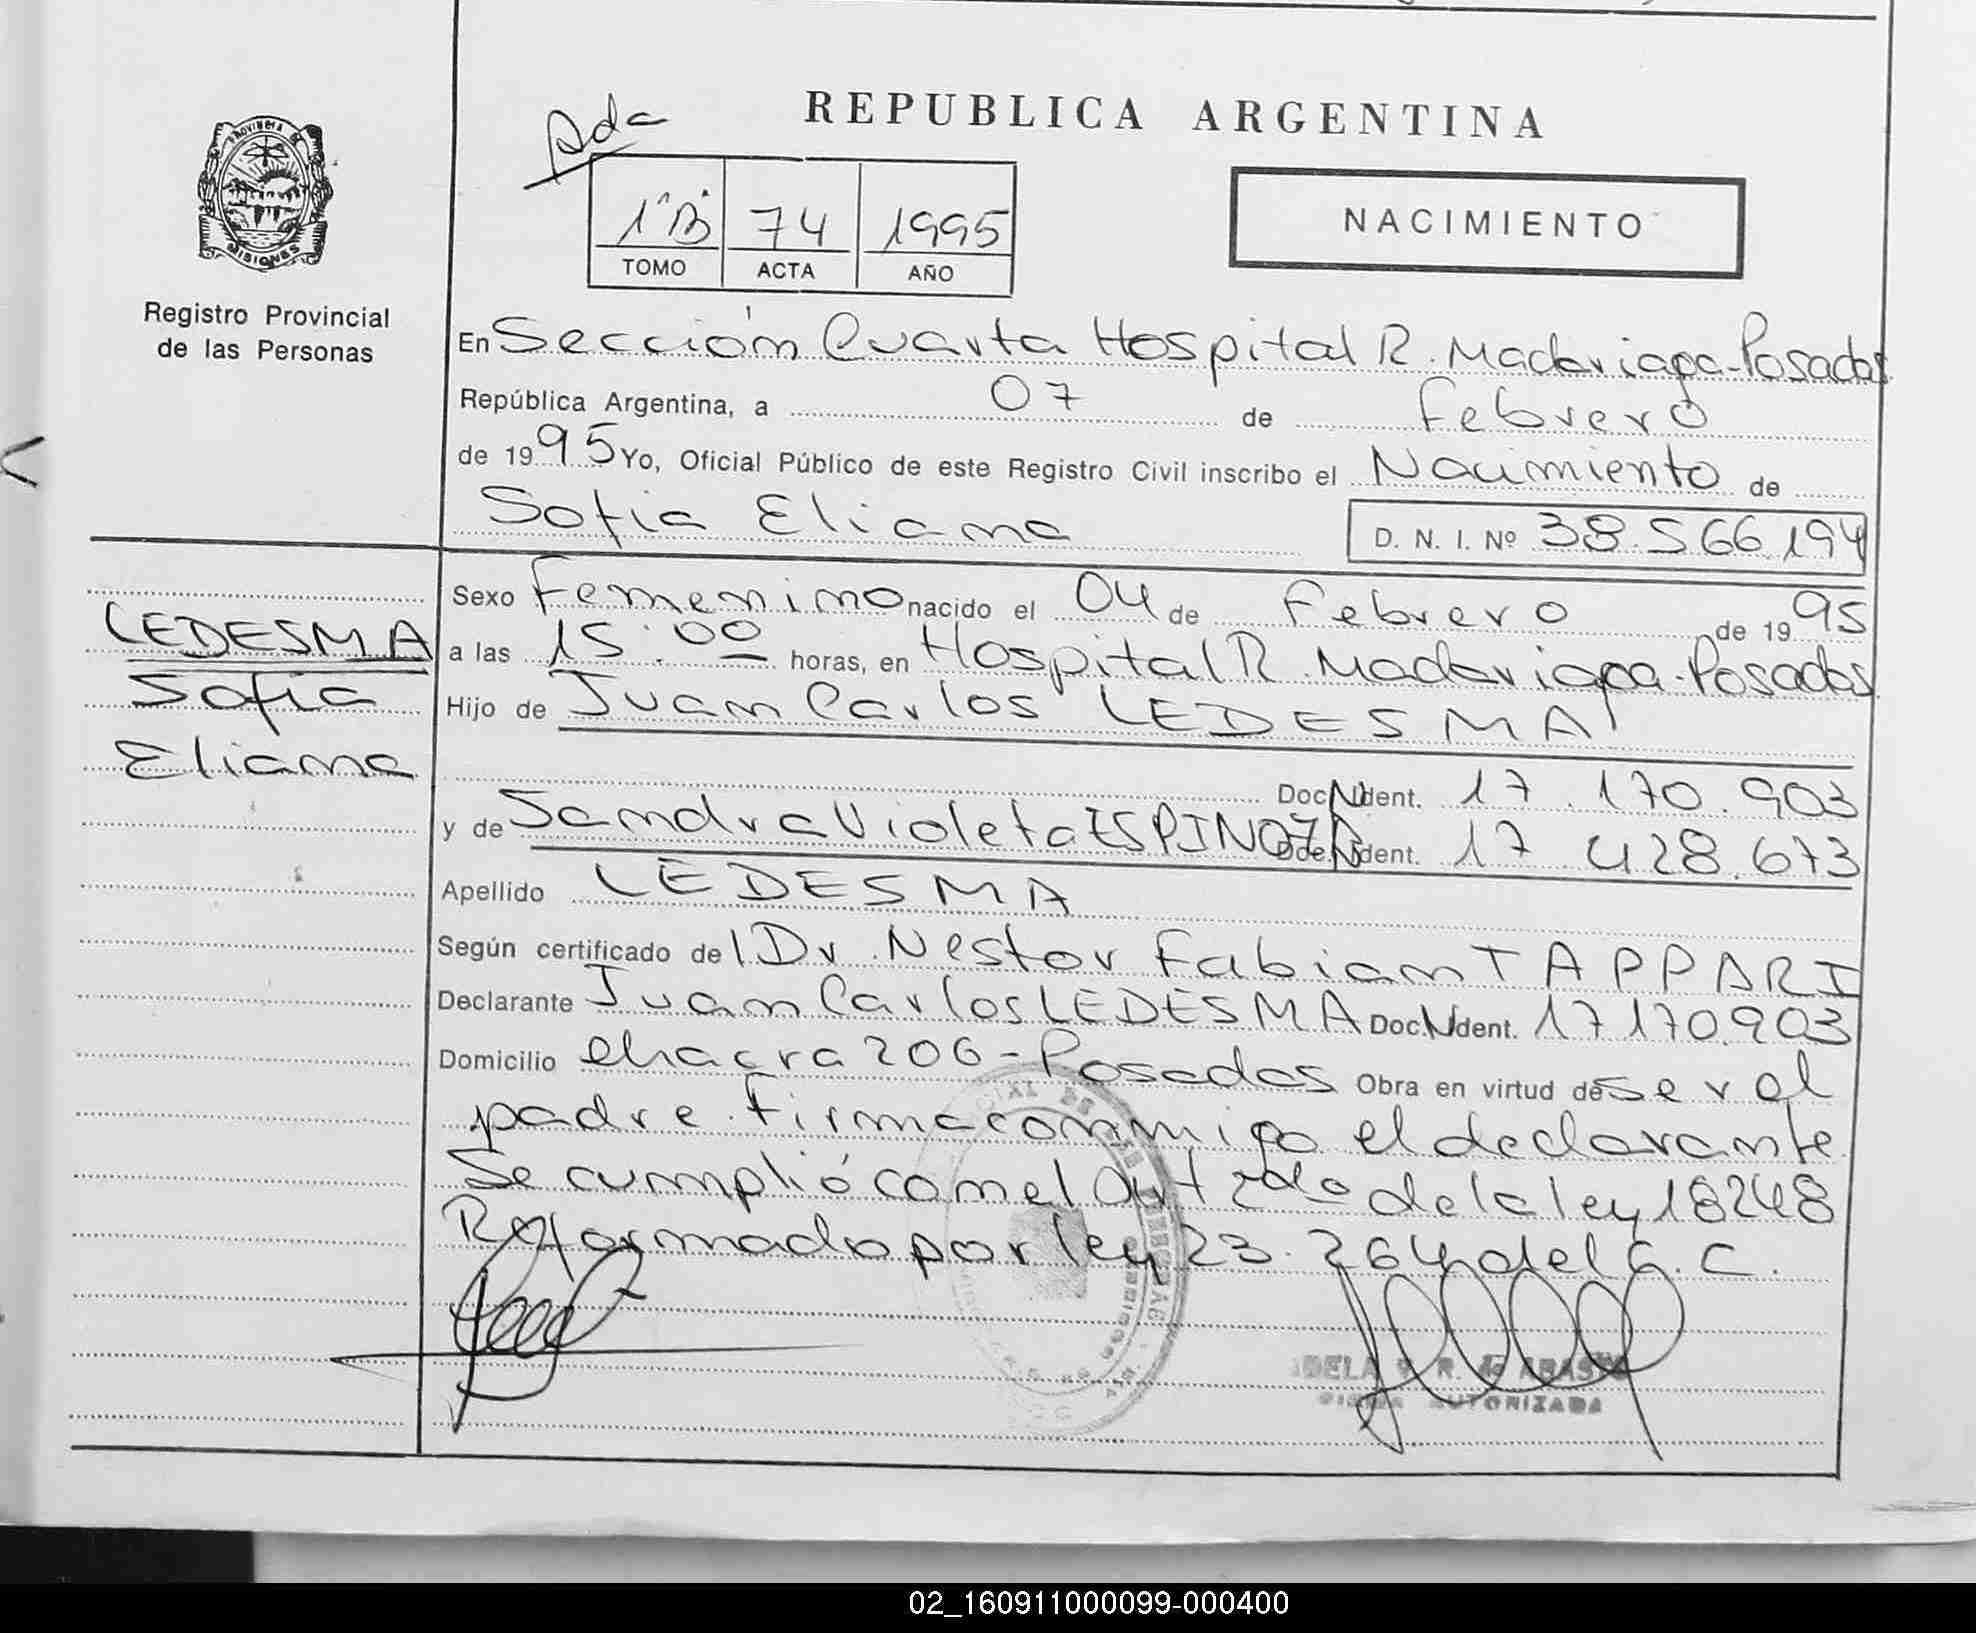 Ada
REPUBLICA ARGENTINA
1ºB 74 1995
TOMO ACTA AÑO
NACIMIENTO
PROVINCIA DE MISIONES
Registro Provincial
de las Personas
En Sección Cuarta Hospital R. Madariaga-Posadas
República Argentina, a 07 de Febrero
de 1995 Yo, Oficial Público de este Registro Civil inscribo el Nacimiento de
Sofia Eliana D. N. I. Nº 38.566.194
LEDESMA
Sofia
Eliana
Sexo Femenino nacido el 04 de Febrero de 1995
a las 15:00 horas, en Hospital R. Madariaga-Posadas
Hijo de Juan Carlos LEDESMA
Doc. Ident. 17.170.903
y de Sandra Violeta ESPINOZA Doc. Ident. 17 428.673
Apellido LEDESMA
Según certificado del Dr. Nestor Fabian TAPPARI
Declarante Juan Carlos LEDESMA Doc. Ident. 17170.903
Domicilio chacra 206-Posadas Obra en virtud de ser el
padre. firma conmigo el declarante
Se cumplió con el Art 2do de la ley 18248
Reformado por ley 23.264 del C.C.
AUTORIZADA
02_160911000099-000400